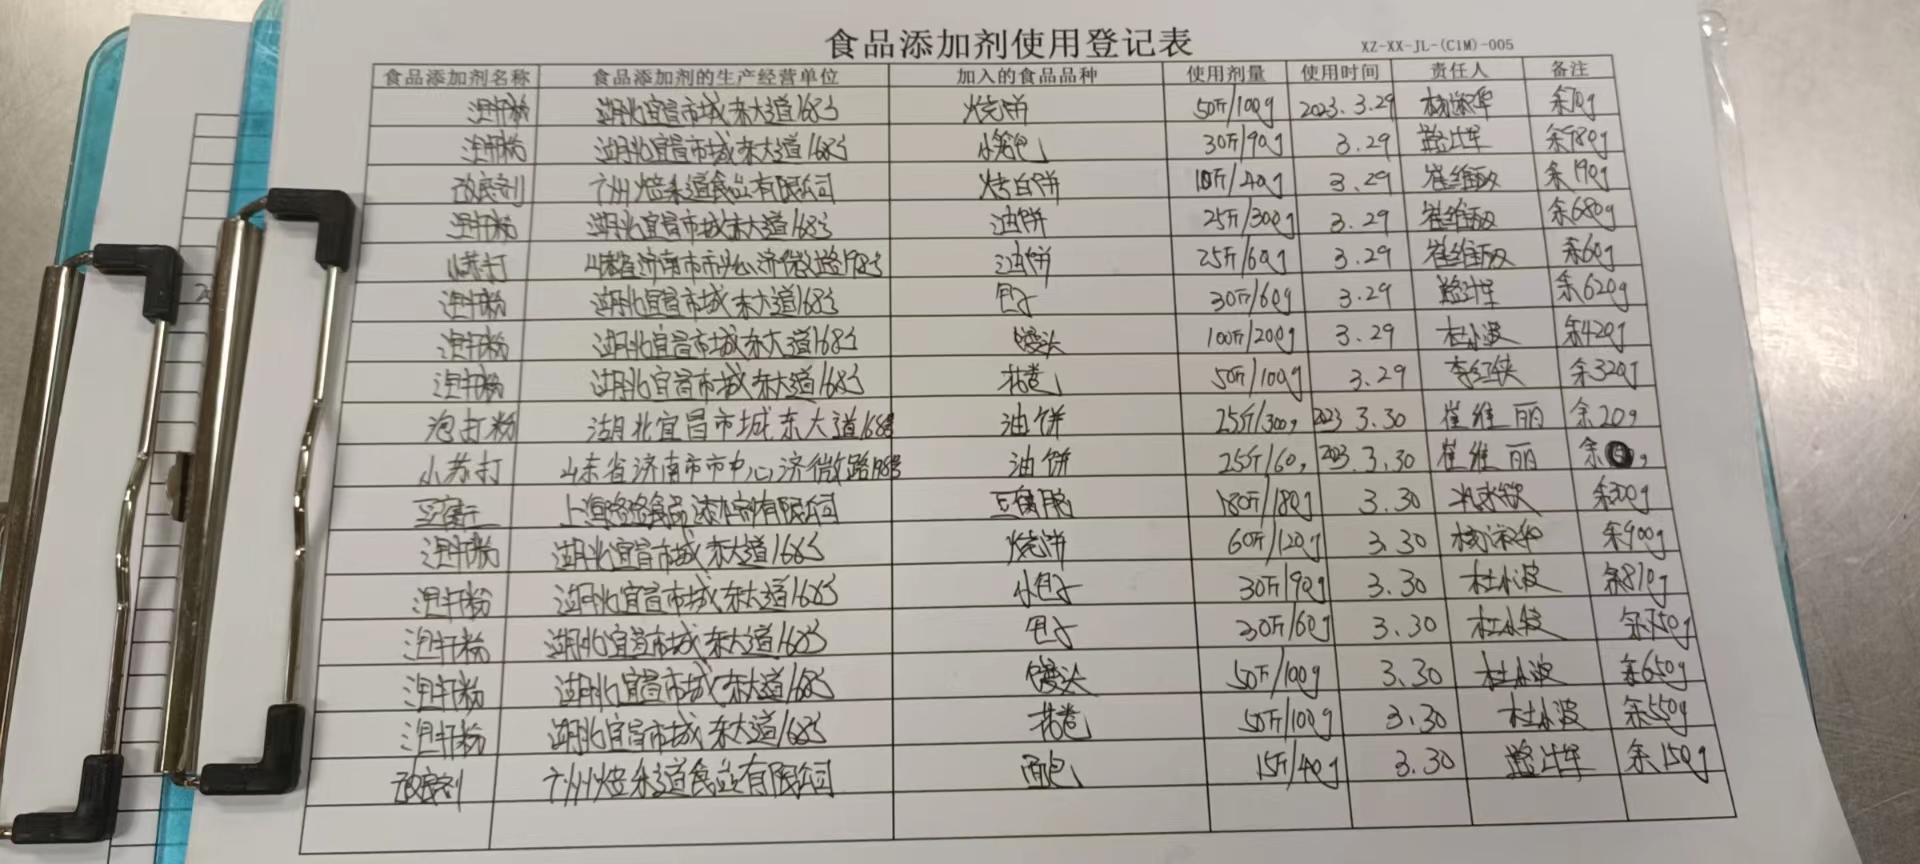 食品添加剂使用登记表
XZ-XX-JL-(CIM)-005
食品添加剂名称 食品添加剂的生产经营单位 加入的食品品种 使用剂量 使用时间 责任人 备注
泡打粉 湖北宜昌市城东大道168号 烧饼 50斤/100g 2023.3.29 余70g
泡打粉 湖北宜昌市城东大道168号 小笼包 30斤/90g 3.29 余980g
改良剂 广州焙乐道食品有限公司 烤白饼 10斤/40g 3.29 崔维丽 余190g
泡打粉 湖北宜昌市城东大道168号 油饼 25斤/300g 3.29 崔维丽 余680g
小苏打 山东省济南市市中心济微路198号 油饼 25斤/60g 3.29 崔维丽 余60g
泡打粉 湖北宜昌市城东大道168号 包子 30斤/60g 3.29 余620g
泡打粉 湖北宜昌市城东大道168号 馒头 100斤/200g 3.29 杜小波 余420g
泡打粉 湖北宜昌市城东大道168号 花卷 50斤/100g 3.29 李红侠 余320g
泡打粉 湖北宜昌市城东大道168号 油饼 25斤/300g 2023 3.30 崔维丽 余20g
小苏打 山东省济南市市中心济微路198号 油饼 25斤/60g 2023.3.30 崔维丽 余
上海 食品添加剂有限公司 豆腐脑 180斤/180g 3.30 余300g
泡打粉 湖北宜昌市城东大道168号 烧饼 60斤/120g 3.30 余900g
泡打粉 湖北宜昌市城东大道168号 小包子 30斤/90g 3.30 杜小波 余810g
泡打粉 湖北宜昌市城东大道168号 包子 30斤/60g 3.30 杜小波 余750g
泡打粉 湖北宜昌市城东大道168号 馒头 50斤/100g 3.30 杜小波 余650g
泡打粉 湖北宜昌市城东大道168号 花卷 50斤/100g 3.30 杜小波 余550g
改良剂 广州焙乐道食品有限公司 面包 15斤/40g 3.30 余150g